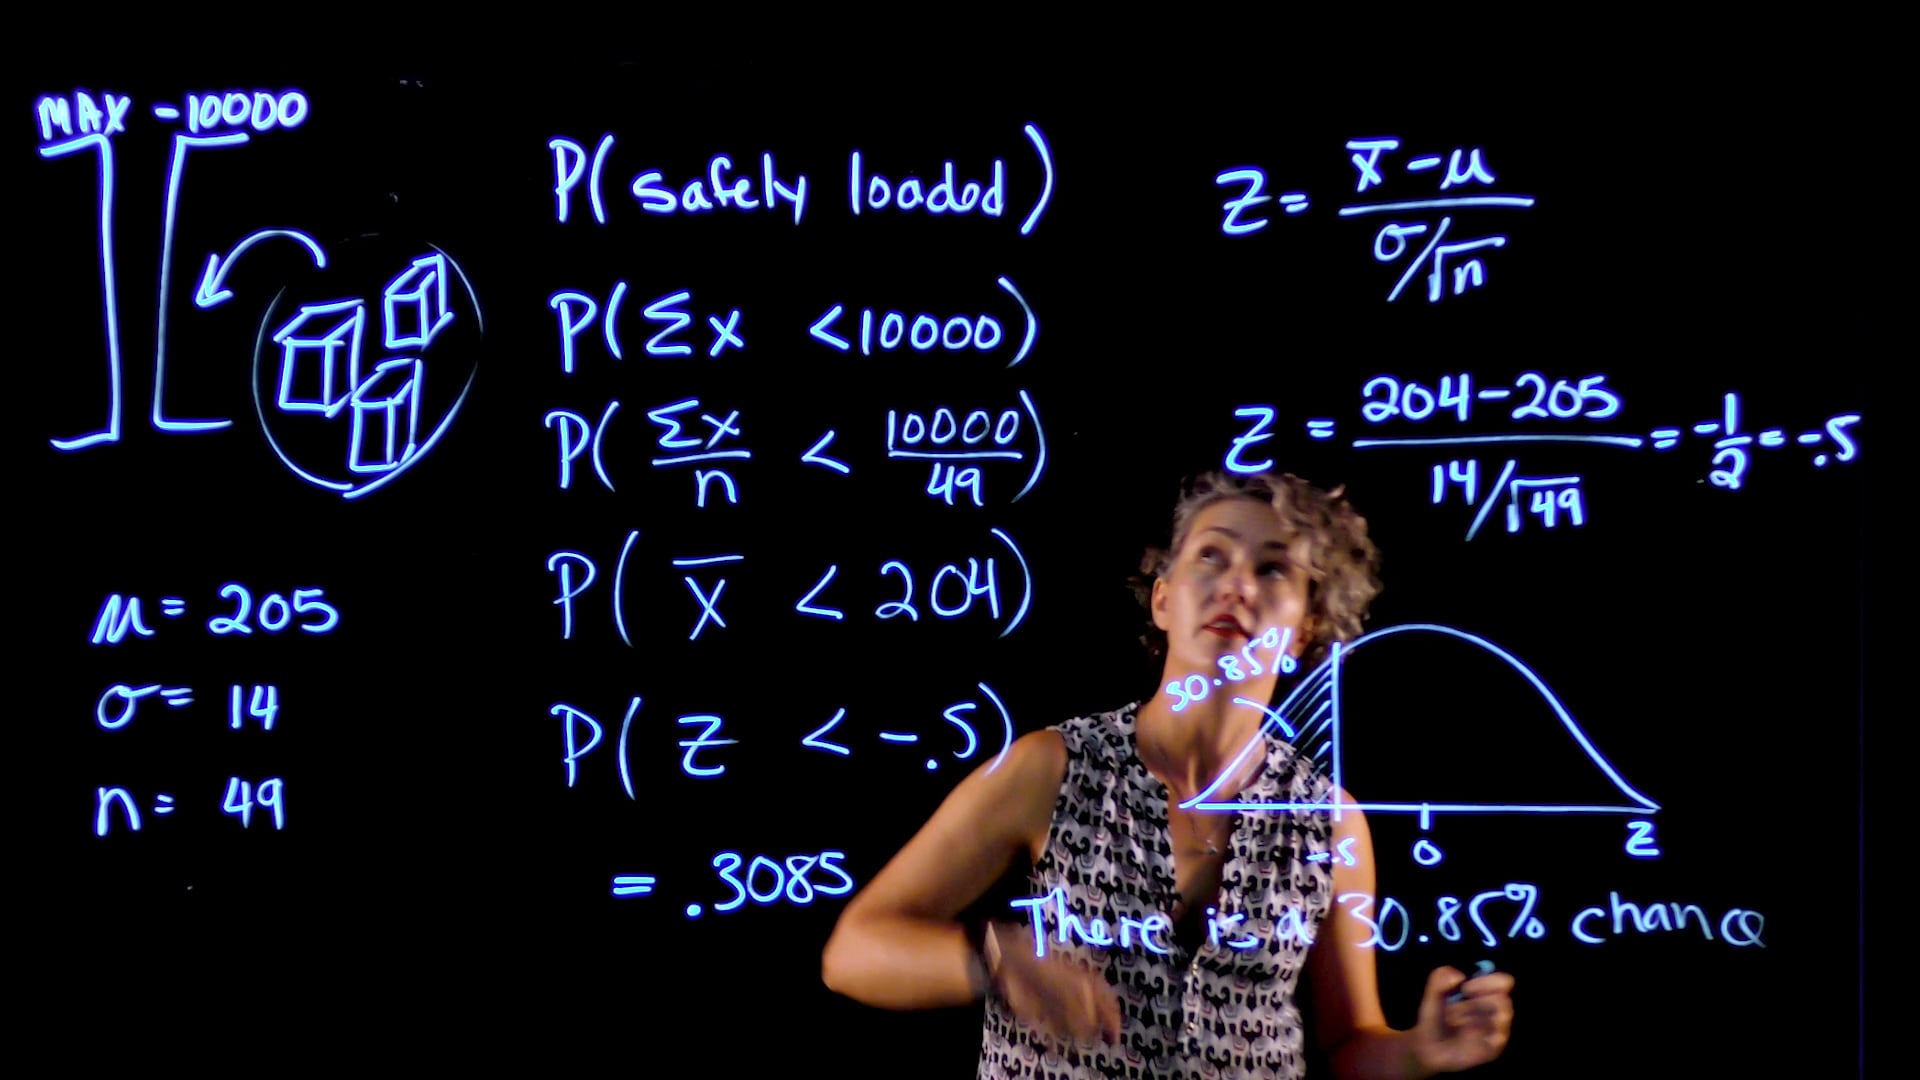 MAX - 10000
μ = 205
σ = 14
n = 49
P( safely loaded )
P( Σx < 10000 )
P( Σx/n < 10000/49 )
P( x̄ < 204 )
P( Z < -.5 )
= .3085
Z = (x̄ - μ)/(σ/√n)
Z = (204-205)/(14/√49) = -1/2 = -.5
30.85%
-.5 0 Z
There is a 30.85% chance